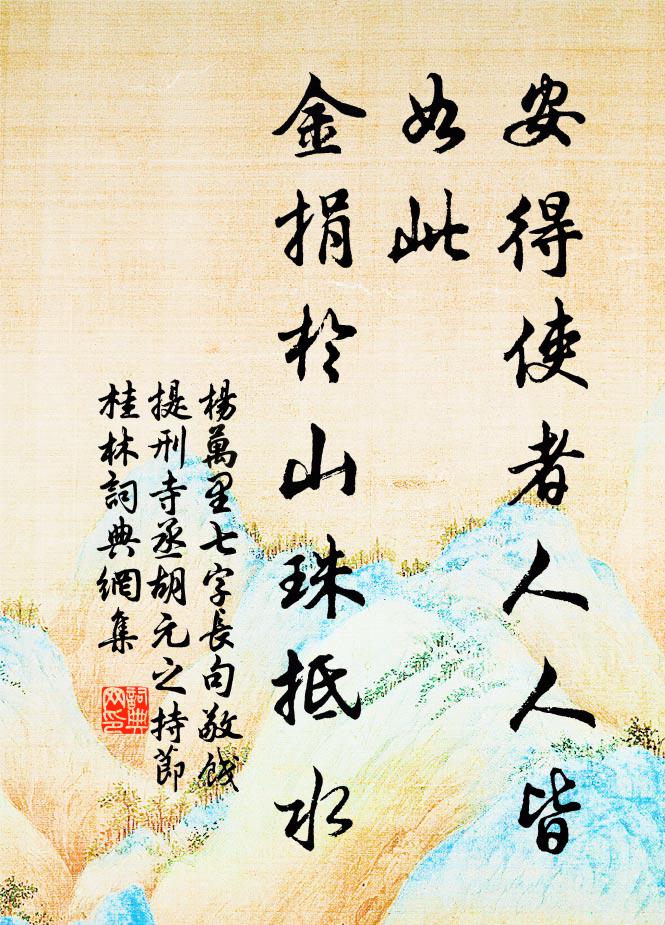 安得使者人人皆
如此
金捐於山珠抵水
楊萬里七字長句敬餞
提刑寺丞胡元之持節
桂林詞典網集
詞典
网印